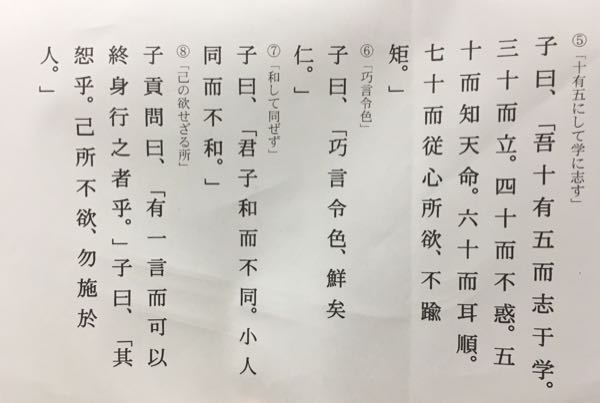 ⑤「十有五にして学に志す」
子曰、「吾十有五而志于学。
三十而立。四十而不惑。五
十而知天命。六十而耳順。
七十而従心所欲、不踰
矩。」
⑥「巧言令色」
子曰、「巧言令色、鮮矣
仁。」
⑦「和して同ぜず」
子曰、「君子和而不同。小人
同而不和。」
⑧「己の欲せざる所」
子貢問曰、「有一言而可以
終身行之者乎。」子曰、「其
恕乎。己所不欲、勿施於
人。」